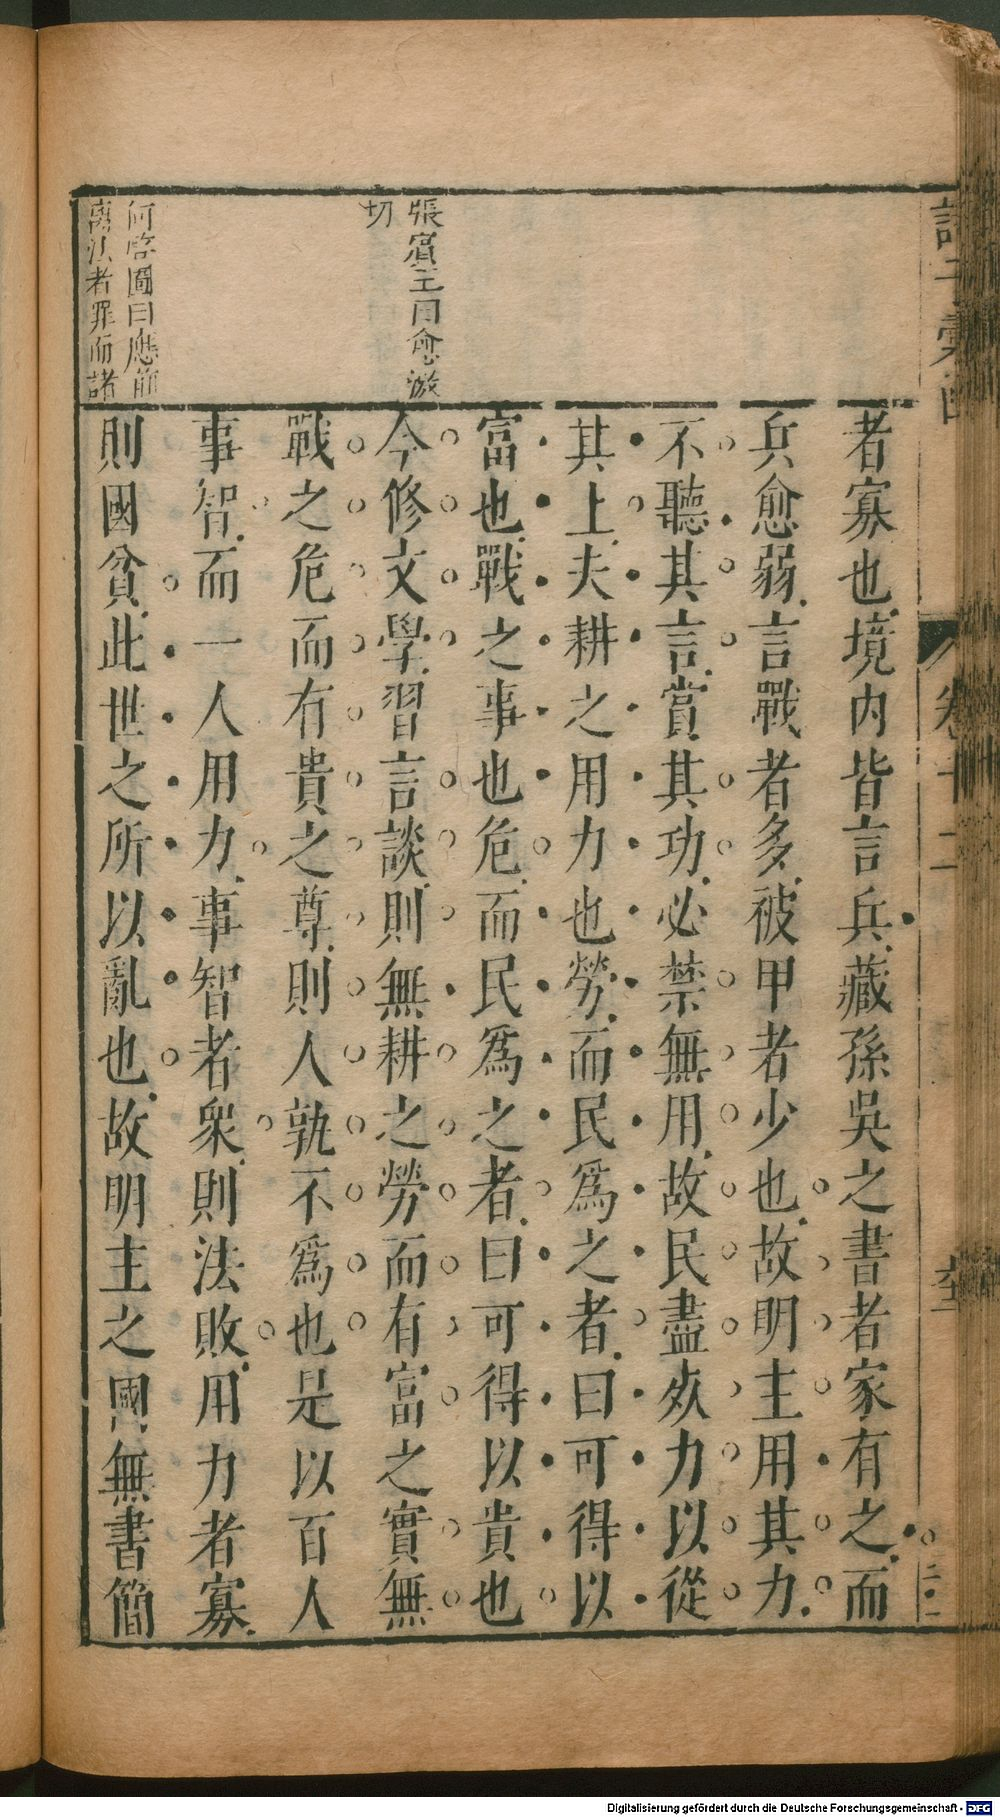 者寡也境内皆言兵藏孫吳之書者家有之而
兵愈弱言戰者多被甲者少也故明主用其力
不聽其言賞其功必禁無用故民盡死力以從
其上夫耕之用力也勞而民爲之者曰可得以
富也戰之事也危而民爲之者曰可得以貴也
今修文學習言談則無耕之勞而有富之實無
戰之危而有貴之尊則人孰不爲也是以百人
事智而一人用力事智者衆則法敗用力者寡
則國貧此世之所以亂也故明主之國無書簡
張賓王曰愈激
切
曰應前
離法者罪而諸
卷十二
Digitalisierung gefördert durch die Deutsche Forschungsgemeinschaft - DFG